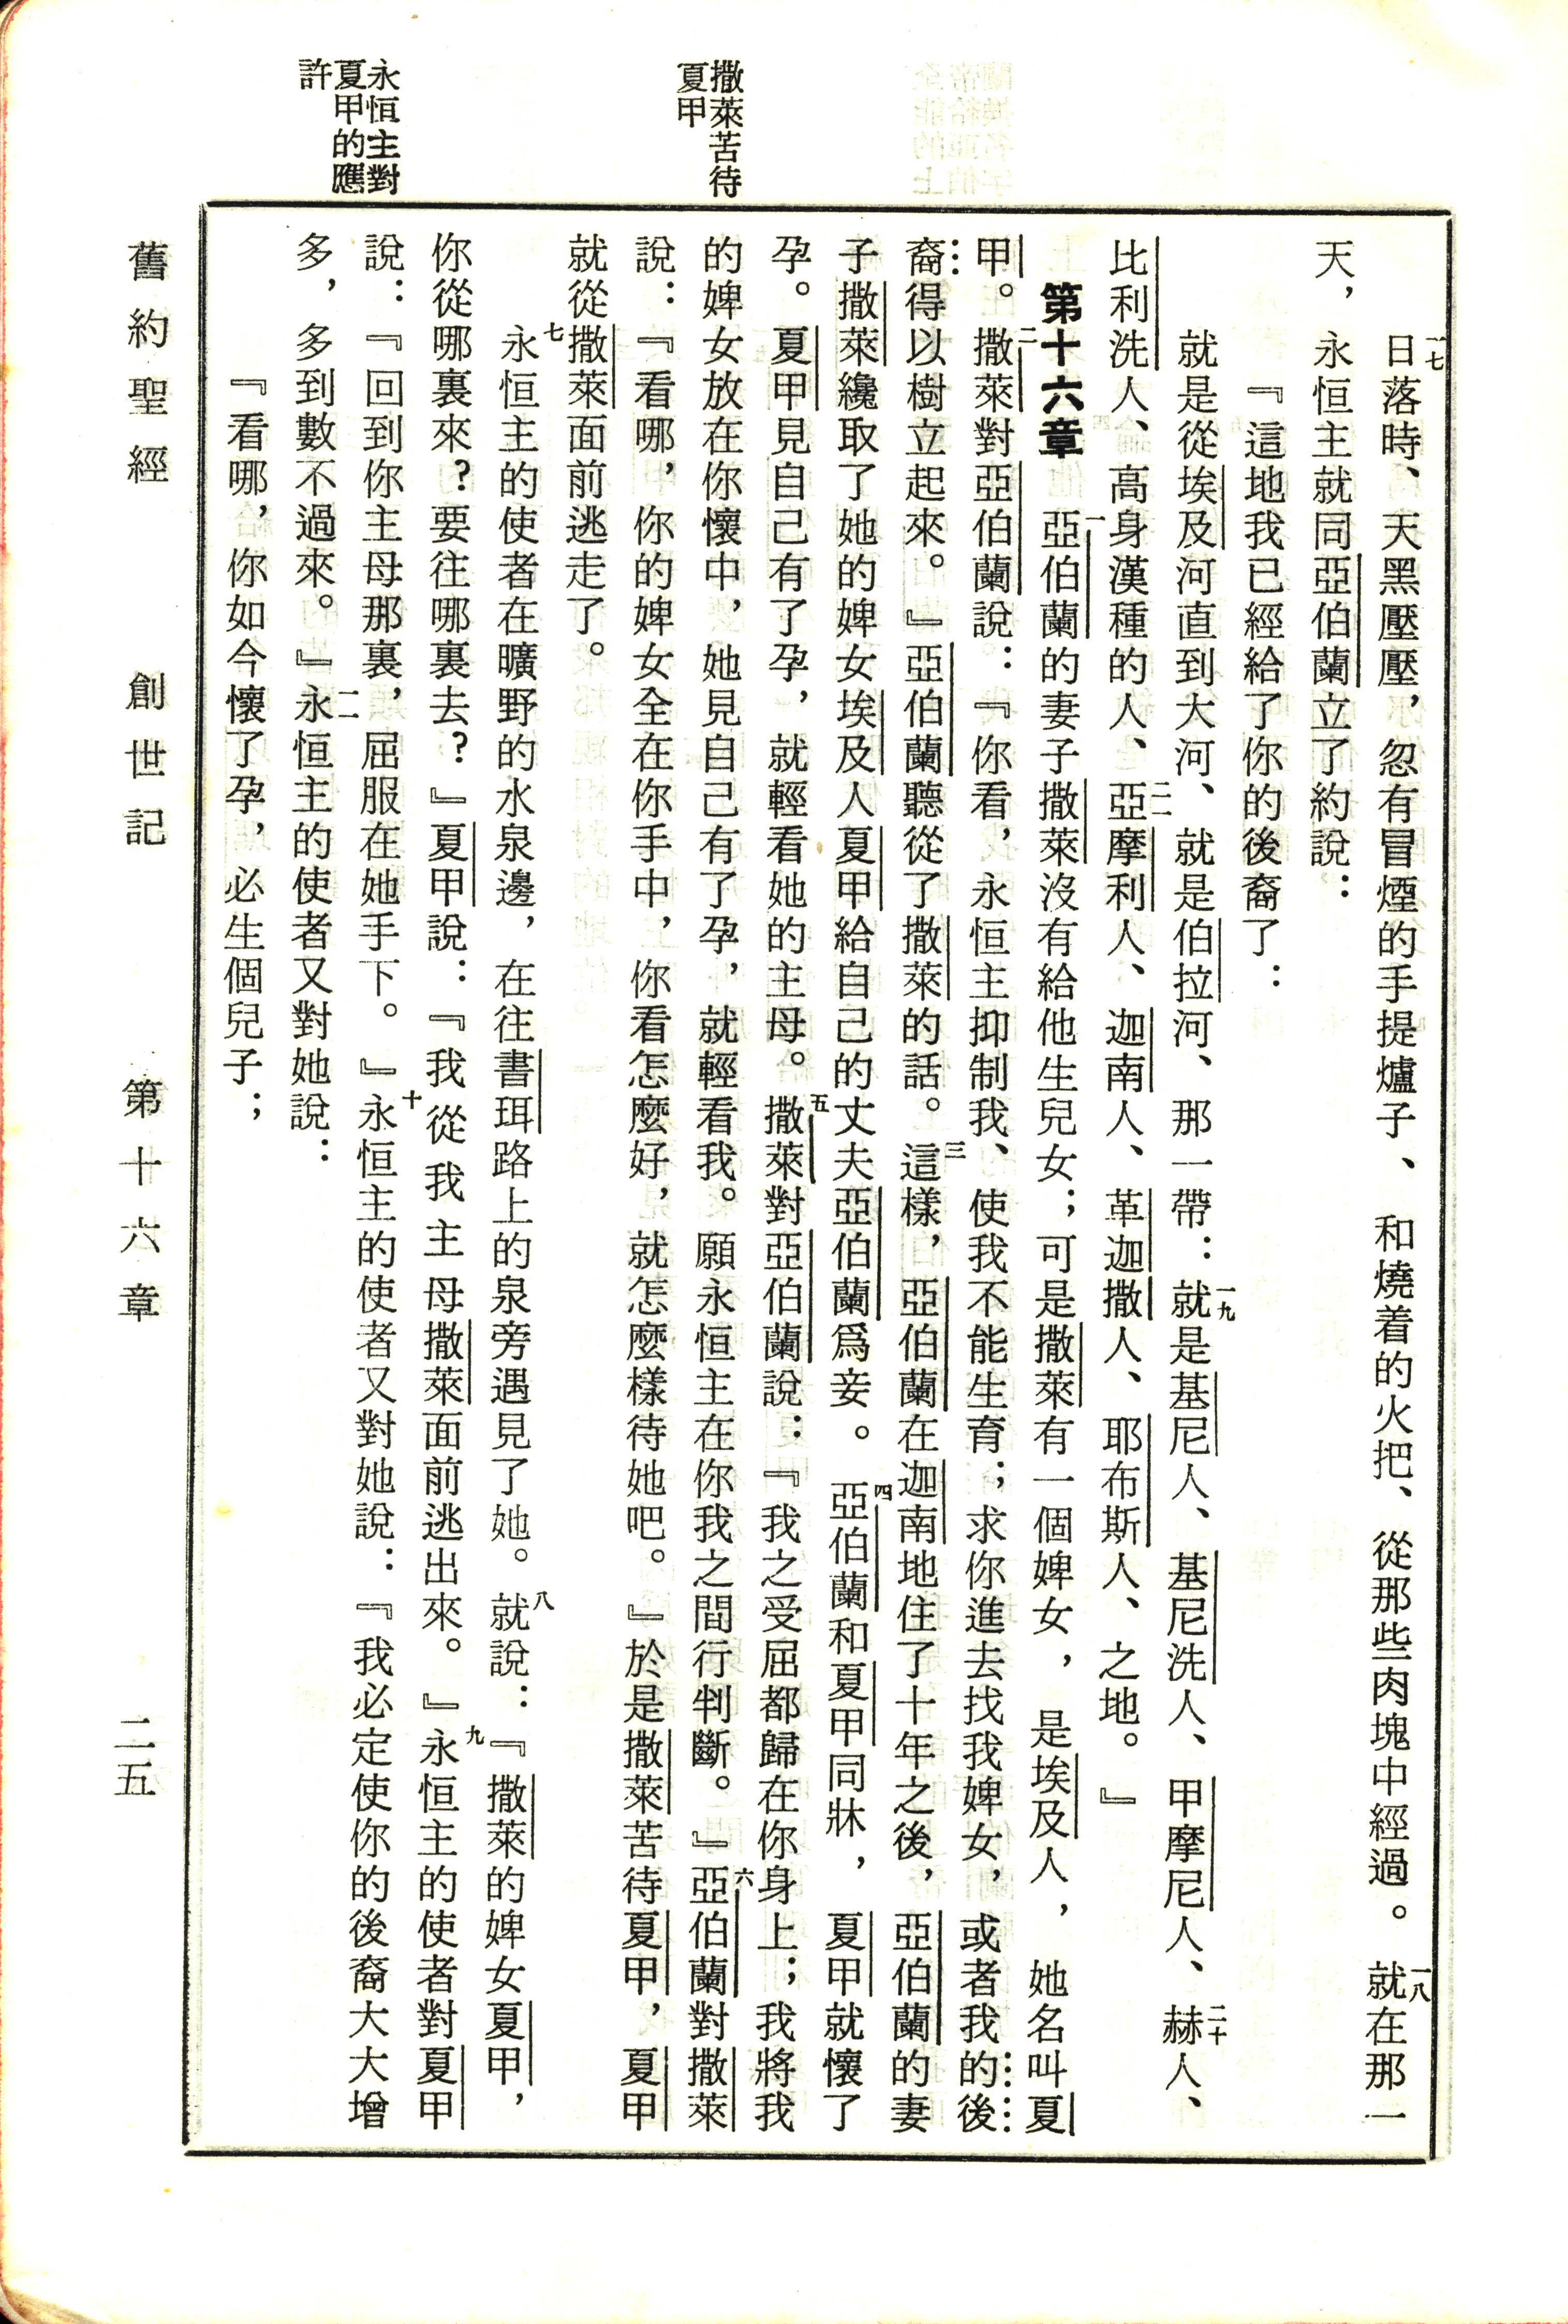 撒萊苦待
夏甲
永恒主對
夏甲的應
許
一七日落時、天黑壓壓，忽有冒煙的手提爐子、和燒着的火把、從那些肉塊中經過。一八就在那一
天，永恒主就同亞伯蘭立了約說：
『這地我已經給了你的後裔了：
就是從埃及河直到大河、就是伯拉河、那一帶：一九就是基尼人、基尼洗人、甲摩尼人、二十赫人、
比利洗人、高身漢種的人、二一亞摩利人、迦南人、革迦撒人、耶布斯人、之地。』
第十六章 一亞伯蘭的妻子撒萊沒有給他生兒女；可是撒萊有一個婢女，是埃及人，她名叫夏
甲。二撒萊對亞伯蘭說：『你看，永恒主抑制我、使我不能生育；求你進去找我婢女，或者我的後
裔得以樹立起來。』亞伯蘭聽從了撒萊的話。三這樣，亞伯蘭在迦南地住了十年之後，亞伯蘭的妻
子撒萊纔取了她的婢女埃及人夏甲給自己的丈夫亞伯蘭爲妾。四亞伯蘭和夏甲同牀，夏甲就懷了
孕。夏甲見自己有了孕，就輕看她的主母。五撒萊對亞伯蘭說：『我之受屈都歸在你身上；我將我
的婢女放在你懷中，她見自己有了孕，就輕看我。願永恒主在你我之間行判斷。』六亞伯蘭對撒萊
說：『看哪，你的婢女全在你手中，你看怎麼好，就怎麼樣待她吧。』於是撒萊苦待夏甲，夏甲
就從撒萊面前逃走了。
七永恒主的使者在曠野的水泉邊，在往書珥路上的泉旁遇見了她。八就說：『撒萊的婢女夏甲，
你從哪裏來？要往哪裏去？』夏甲說：『我從我主母撒萊面前逃出來。』九永恒主的使者對夏甲
說：『回到你主母那裏，屈服在她手下。』十永恒主的使者又對她說：『我必定使你的後裔大大增
多，多到數不過來。』一一永恒主的使者又對她說：
『看哪，你如今懷了孕，必生個兒子；
舊約聖經 創世記 第十六章 二五